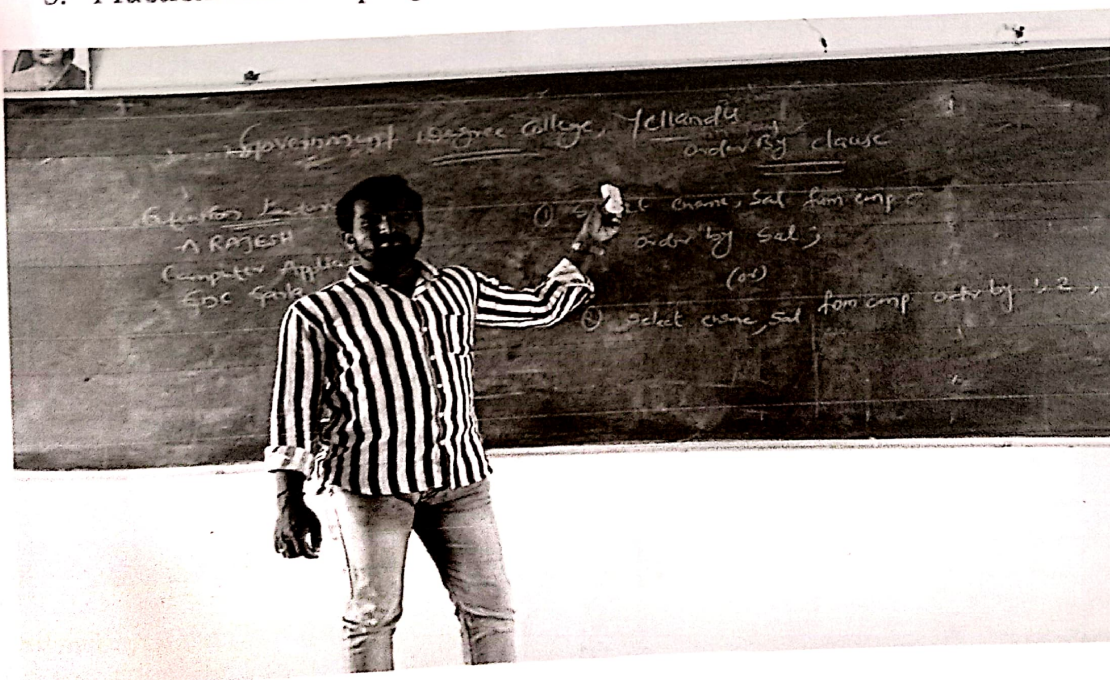 Government Degree College, Yellandu
Order By clause
Extension Lecture
A RAJESH
Computer
GDC
① ename, Sal from emp
order by Sal;
(or)
② select ename, Sal from emp order by 1, 2,